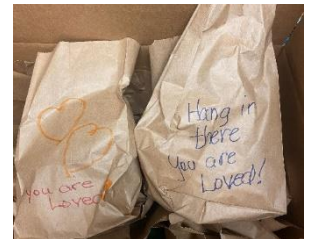 you are
Loved!
Hang in
there
You are
Loved!